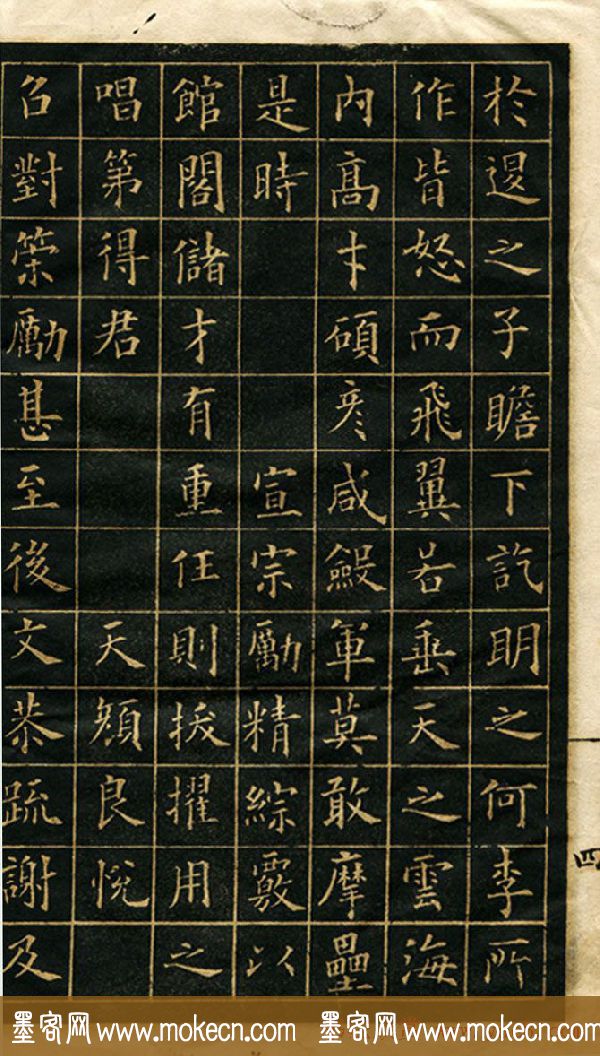 於退之子瞻下訖明之何李所
作皆怒而飛翼若垂天之雲海
内高才碩彦咸殿軍莫敢摩壘
是時宣宗勵精綜覈以
館閣儲才有重任則拔擢用之
唱第得君天顏良悅
召對策勵甚至後文恭疏謝及
四
墨客网 www.mokecn.com 墨客网 www.mokecn.com